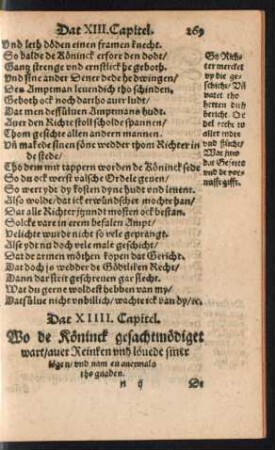 Dat XIII. Capitel. 269
Vnd leth döden einen framen knecht.
So balde de Köninck erfört den dodt/
Gang strenge vnd ernstlick he geboth.
Vnd sine ander Dener dede he dwingen/
Den Amptman leuendich tho schinden.
Geboth ock noch dartho auer ludt/
Dat men dessüluen Amptmans hudt.
Auer den Richtstoll scholde spannen/
Thom gesichte allen andern mannen.
Vn makede sinen söne wedder thom Richter in
de stede/
Tho dem mit tappern worden de Köninck sede
So du ock werst valsche Ordele geuen/
So wert ydt dy kosten dyne hudt vnd leuent.
Also wolde/ dat ick erwünschen mochte han/
Dat alle Richter jtzundt mosten ock bestan.
Solcke vare in erem befalen Ampt/
Velichte wurde nicht so vele geprangt.
Alse ydt nu doch vele mal geschicht/
Dat de armen möthen kopen dat Gericht.
Dat doch js wedder de Gödtliken Recht/
Dann dar steit geschreuen gar slecht.
Wat du gerne woldest hebben van my/
Dat sülue nicht vnbillich/ wachte ick van dy/ ꝛc.
Gy Rich-
ter mercket
vp die ge-
schichte/
vnd
Dat XIIII. Capitel.
Wo de Köninck gesachtmödiget
wart/ auer Reinken vnd löuede siner
lögen/ vnd nam en anermals
tho gnaden.
n ij De